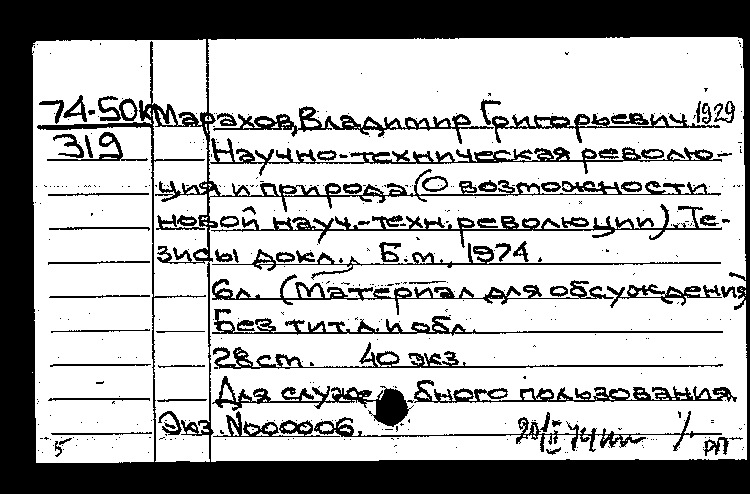 74-50к Марахов, Владимир Григорьевич. 1929
319 Научно-техническая револю-
ция и природа. (О возможности
новой науч.-техн. революции). Те-
зисы докл., Б.м., 1974.
6л. (Материал для обсуждения)
Без тит. л. и обл.
28 cm. 40 экз.
Для служебного пользования.
Экз. №000006.
5 20/II 74 РП